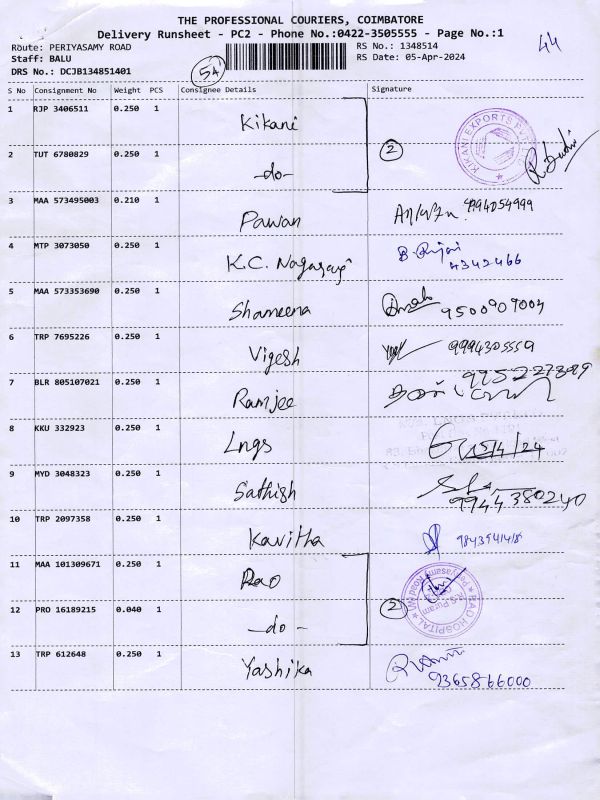 THE PROFESSIONAL COURIERS, COIMBATORE
Delivery Runsheet - PC2 - Phone No.:0422-3505555 - Page No.:1
Route: PERIYASAMY ROAD
Staff: BALU
DRS No.: DCJB134851401
RS No.: 1348514
RS Date: 05-Apr-2024
44
54
S No Consignment No Weight PCS Consignee Details Signature
1 RJP 3406511 0.250 1 Kikani
KIKANI EXPORTS PVT
2
2 TUT 6780829 0.250 1 -do-
3 MAA 573495003 0.210 1 Pawan 9994054999
4 MTP 3073050 0.250 1 K.C. 4342466
5 MAA 573353690 0.250 1 Shameena 9500909004
6 TRP 7695226 0.250 1 Vigesh 9994305559
7 BLR 805107021 0.250 1 Ramjee
8 KKU 332923 0.250 1 Lngs 15/4/24
9 MYD 3048323 0.250 1 Sathish 9944380240
10 TRP 2097358 0.250 1 Kavitha
11 MAA 101309671 0.250 1 Rao
RAO HOSPITAL
Periyasamy Road (W)
R.S Puram
2
12 PRO 16189215 0.040 1 -do-
13 TRP 612648 0.250 1 Yashika
9365866000